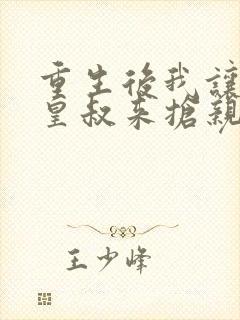 重生後我讓
皇叔來搶親
王少峰